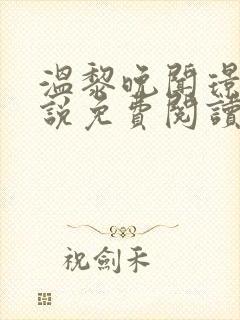 溫黎晚聞璟
說免費閱讀
祝劍禾